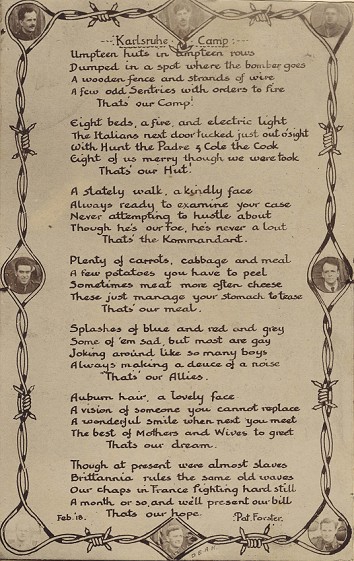 Karlsruhe Camp:
Umpteen huts in umpteen rows
Dumped in a spot where the bomber goes
A wooden fence and strands of wire
A few odd Sentries with orders to fire
Thats' our Camp!
Eight beds, a fire, and electric light
The Italians next door tucked just out o'sight
With Hunt the Padre & Cole the Cook
Eight of us merry though we were took
Thats' our Hut!
A stately walk, a kindly face
Always ready to examine your case
Never attempting to hustle about
Though he's our foe, he's never a lout
Thats' the Kommandant.
Plenty of carrots, cabbage and meal
A few potatoes you have to peel
Sometimes meat more often cheese
These just manage your stomach to tease
Thats' our meal.
Splashes of blue and red and grey
Some of 'em sad, but most are gay
Joking around like so many boys
Always making a deuce of a noise
Thats' our Allies.
Auburn hair, a lovely face
A vision of someone you cannot replace
A wonderful smile when next you meet
The best of Mothers and Wives to greet
Thats our dream.
Though at present were almost slaves
Brittannia rules the same old waves
Our chaps in France fighting hard still
A month or so, and we'll present our bill
Thats our hope.
Feb. '18. Pat. Forster.
DEAN